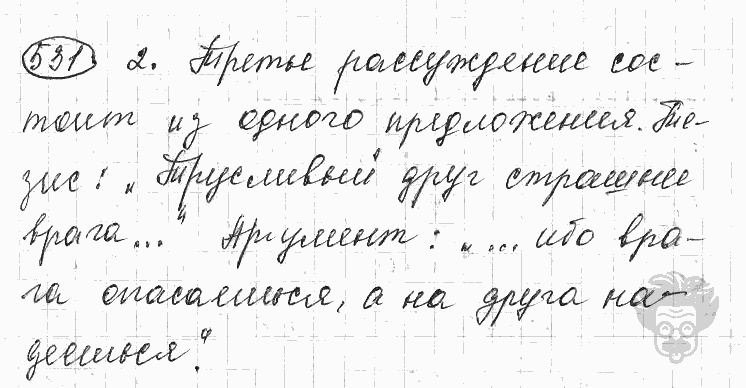 531 2. Третье рассуждение сос-
тоит из одного предложения. Те-
зис: „Трусливый друг страшнее
врага..." Аргумент: „... ибо вра-
га опасаешься, а на друга на-
деешься."